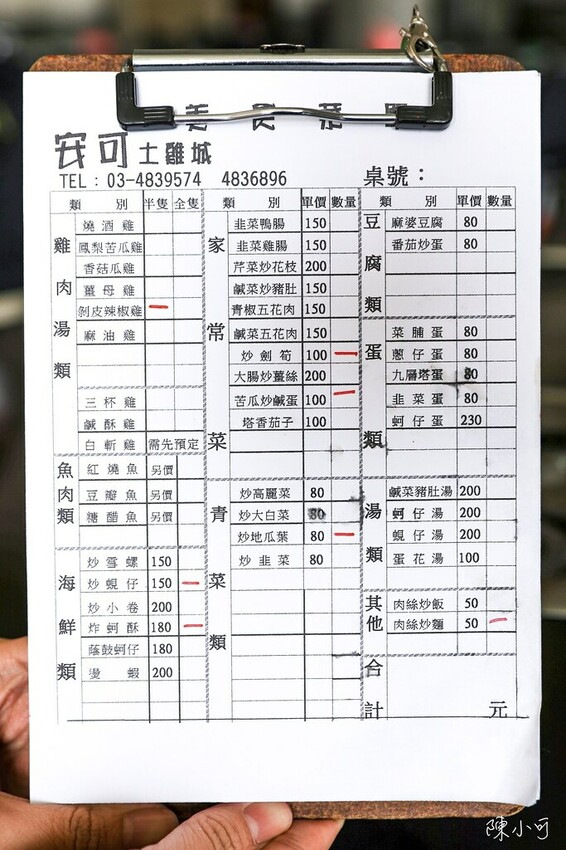 安可土雞城
TEL：03-4839574 4836896 桌號：
類別 半隻 全隻
雞肉湯類
燒酒雞
鳳梨苦瓜雞
香菇瓜雞
薑母雞
剝皮辣椒雞
麻油雞
三杯雞
鹹酥雞
白斬雞 需先預定
魚肉類
紅燒魚 另價
豆瓣魚 另價
糖醋魚 另價
海鮮類
炒雪螺 150
炒蜆仔 150
炒小卷 200
炸蚵酥 180
蔭鼓蚵仔 180
燙蝦 200
類別 單價 數量
家常菜
韭菜鴨腸 150
韭菜雞腸 150
芹菜炒花枝 200
鹹菜炒豬肚 150
青椒五花肉 150
鹹菜五花肉 150
炒劍筍 100
大腸炒薑絲 200
苦瓜炒鹹蛋 100
塔香茄子 100
青菜類
炒高麗菜 80
炒大白菜 80
炒地瓜葉 80
炒韭菜 80
類別 單價 數量
豆腐類
麻婆豆腐 80
番茄炒蛋 80
蛋類
菜脯蛋 80
蔥仔蛋 80
九層塔蛋 80
韭菜蛋 80
蚵仔蛋 230
湯類
鹹菜豬肚湯 200
蚵仔湯 200
蜆仔湯 200
蛋花湯 100
其他
肉絲炒飯 50
肉絲炒麵 50
合計 元
陳小可